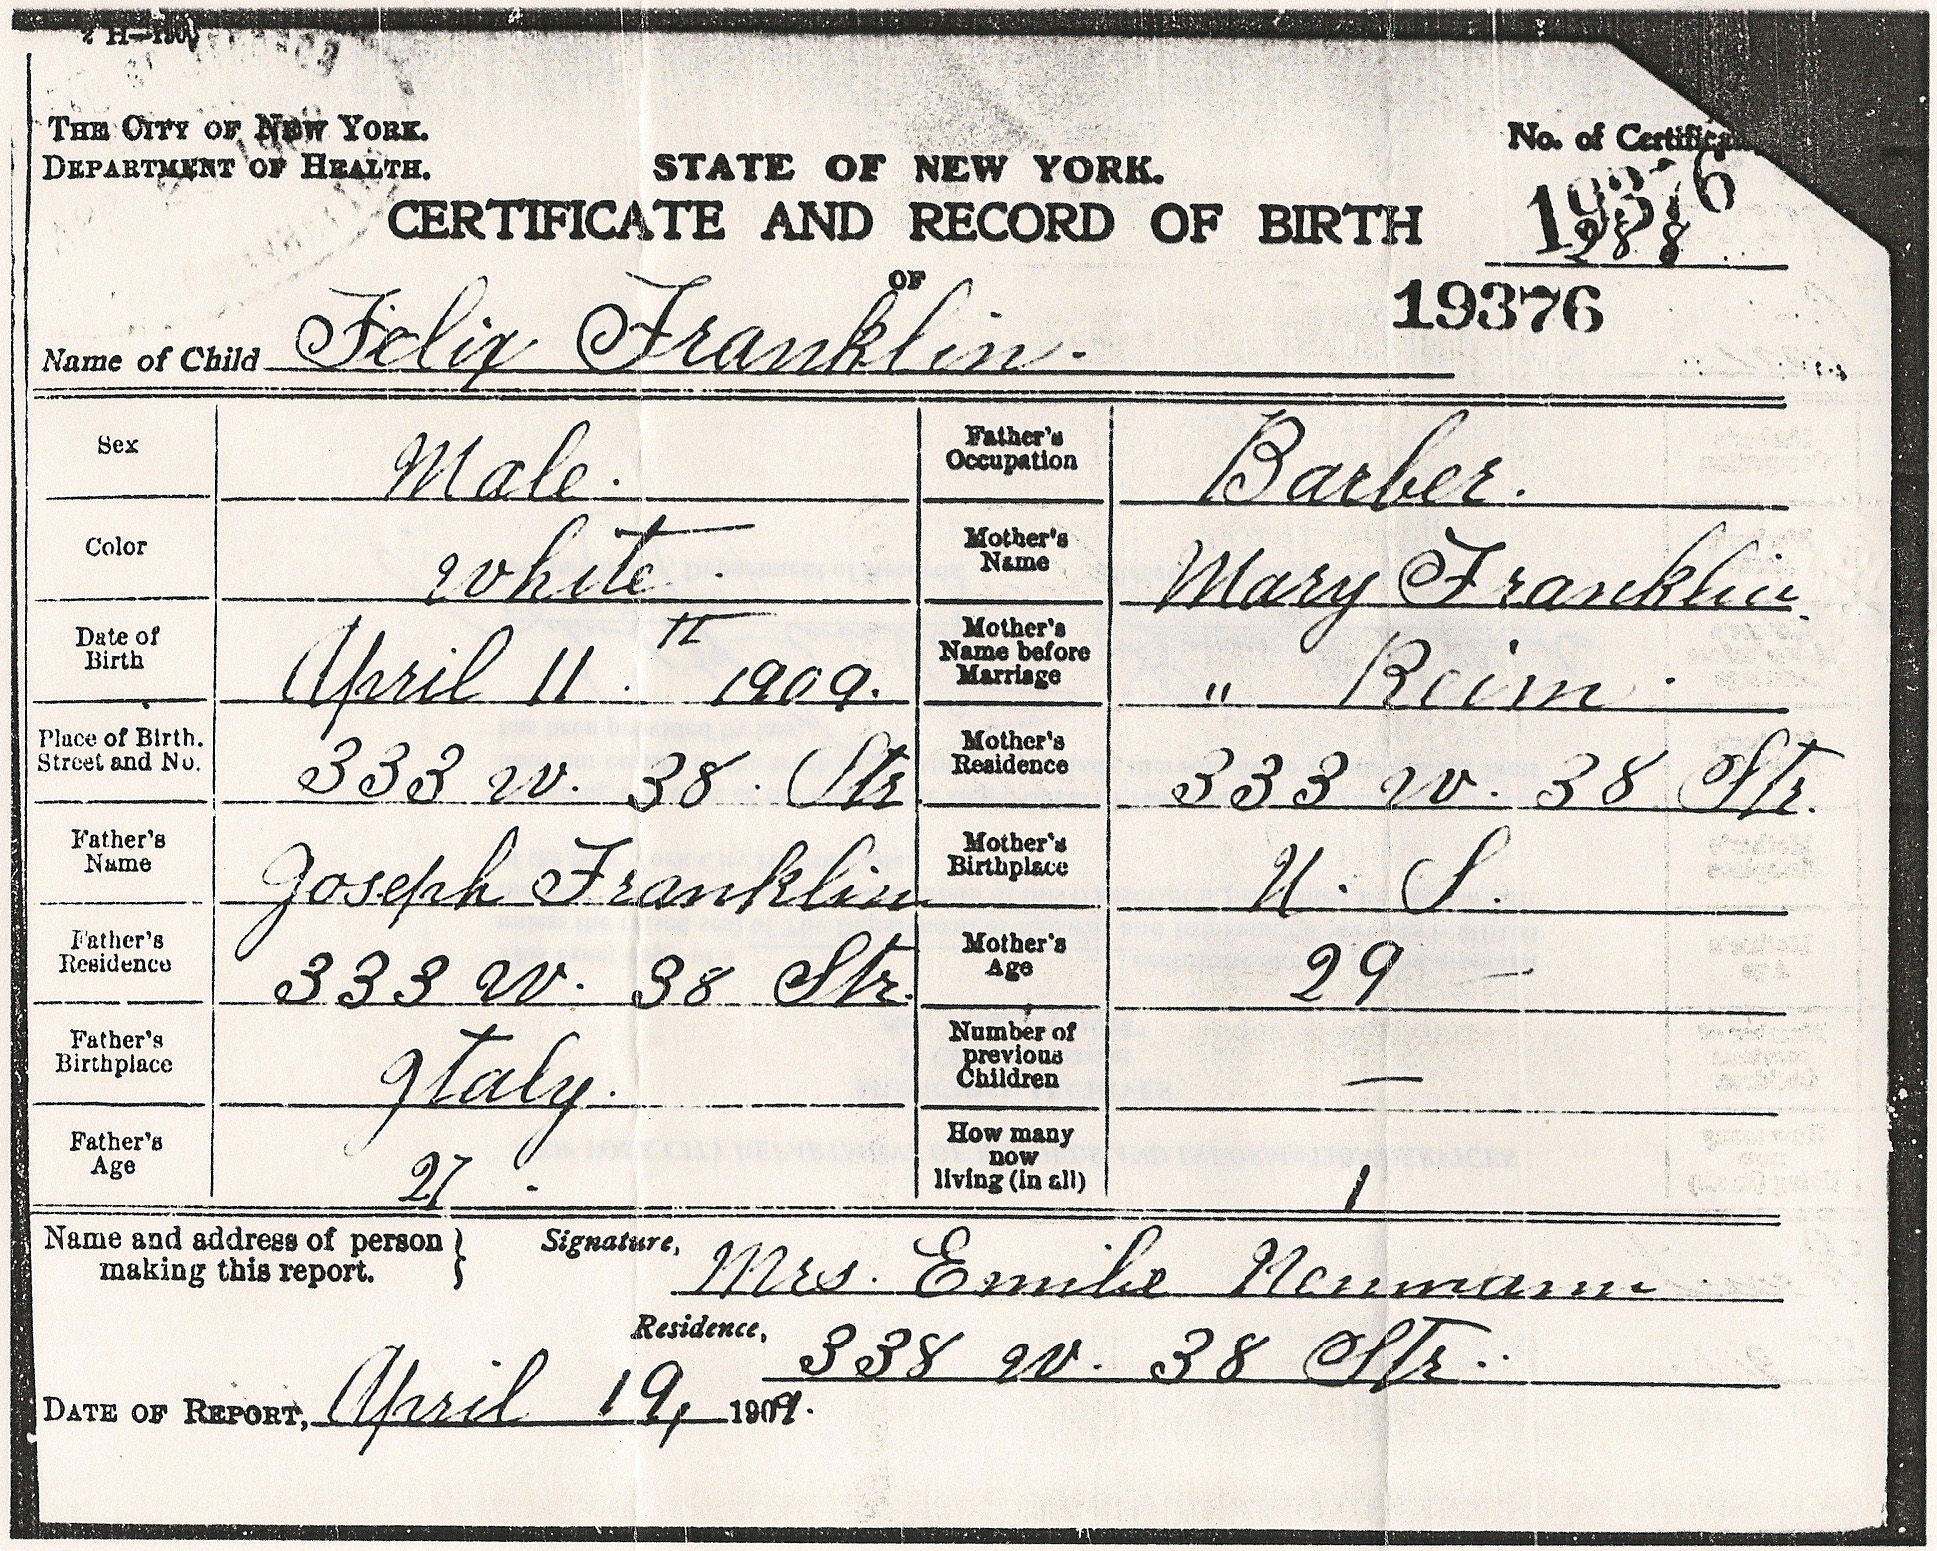 2 H—1909
THE CITY OF NEW YORK.
DEPARTMENT OF HEALTH.
STATE OF NEW YORK.
No. of
CERTIFICATE AND RECORD OF BIRTH
OF
19376
Name of Child Felix Franklin.
Sex Male.
Father's Occupation Barber.
Color White.
Mother's Name Mary Franklin
Date of Birth April 11th 1909.
Mother's Name before Marriage " Reim.
Place of Birth. Street and No. 333 W. 38. Str.
Mother's Residence 333 W. 38 Str.
Father's Name Joseph Franklin
Mother's Birthplace U. S.
Father's Residence 333 W. 38 Str.
Mother's Age 29 —
Father's Birthplace Italy.
Number of previous Children —
Father's Age 27.
How many now living (in all) 1
Name and address of person making this report.
Signature, Mrs. Emilie Neumann
Residence, 338 W. 38 Str.
DATE OF REPORT, April 19, 1909.